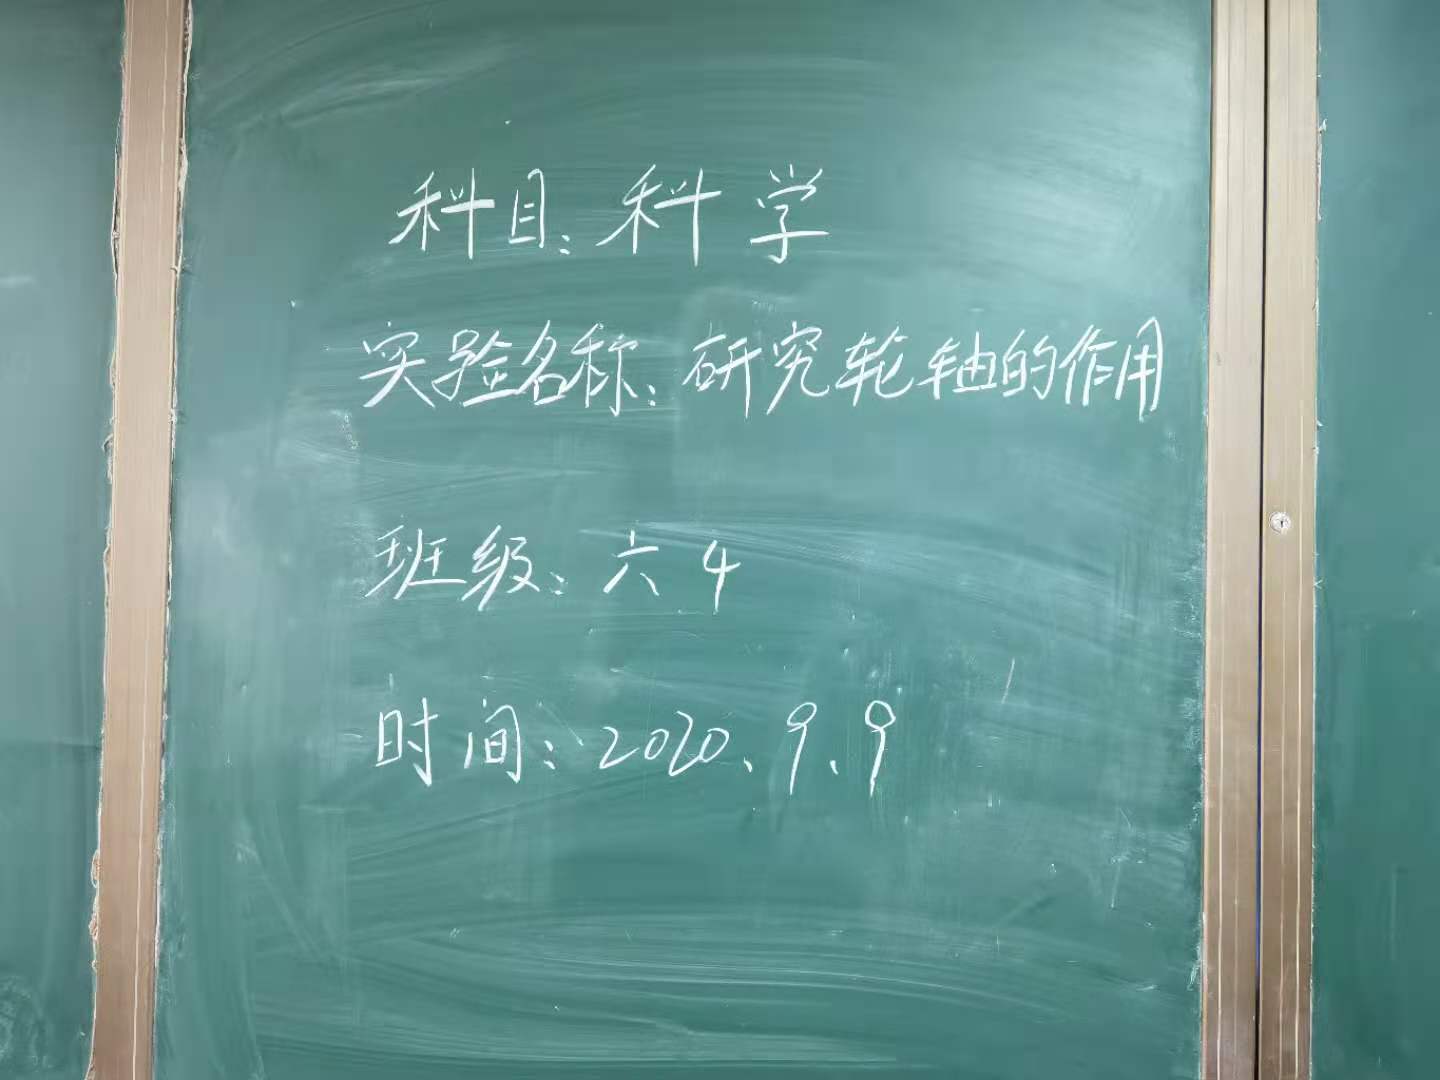 科目：科学
实验名称：研究轮轴的作用
班级：六4
时间：2020、9、9